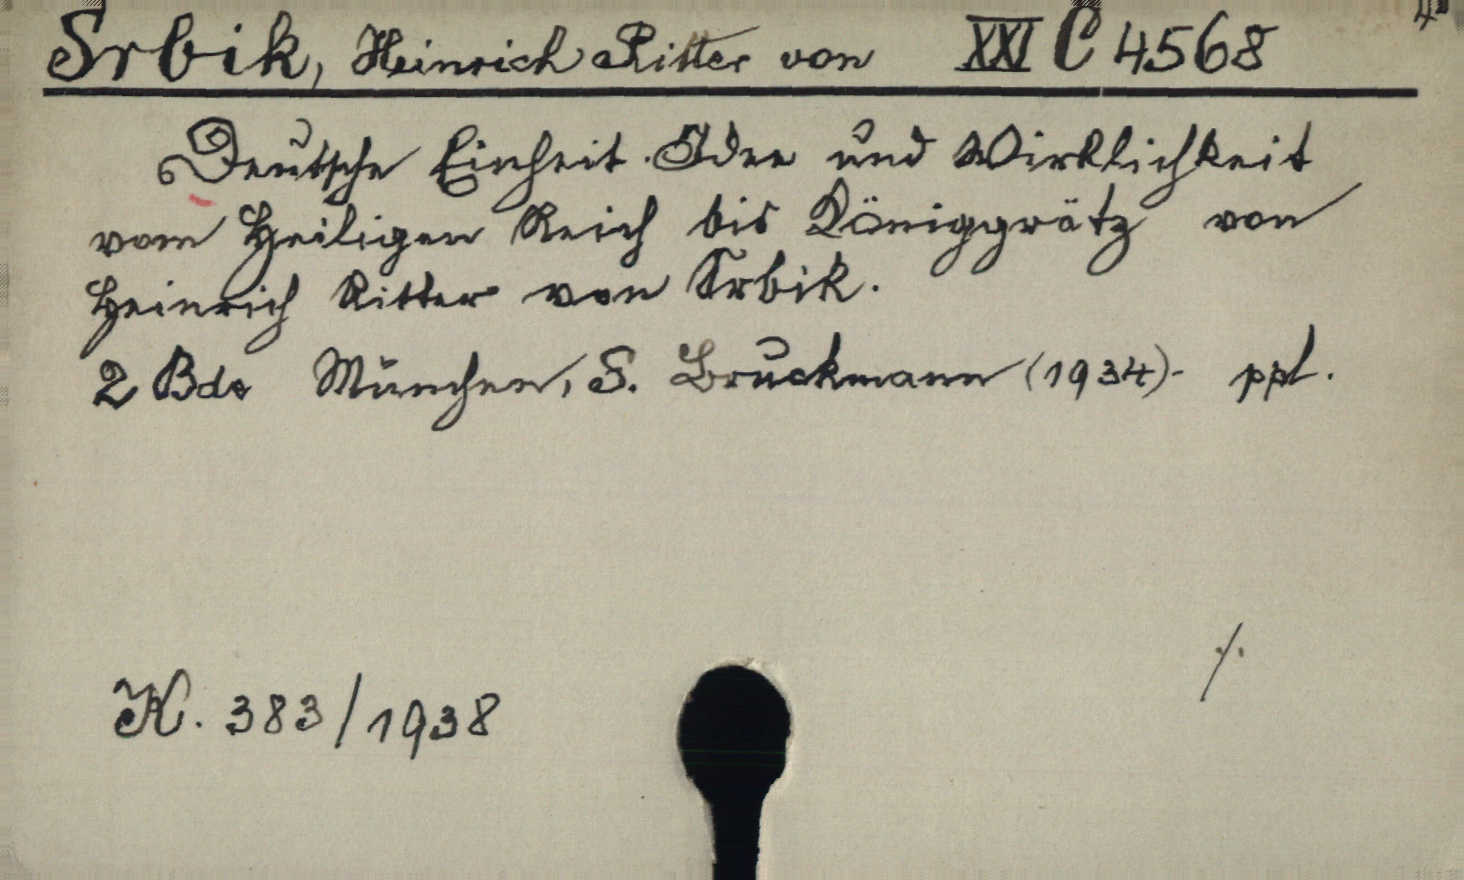 4°
Srbik, Heinrich Ritter von XXI C 4568
Deutsche Einheit. Idee und Wirklichkeit
vom Heiligen Reich bis Königgrätz von
Heinrich Ritter von Srbik.
2 Bde München, S. Bruckmann (1934)- ppl.
K. 383/1938
⁒